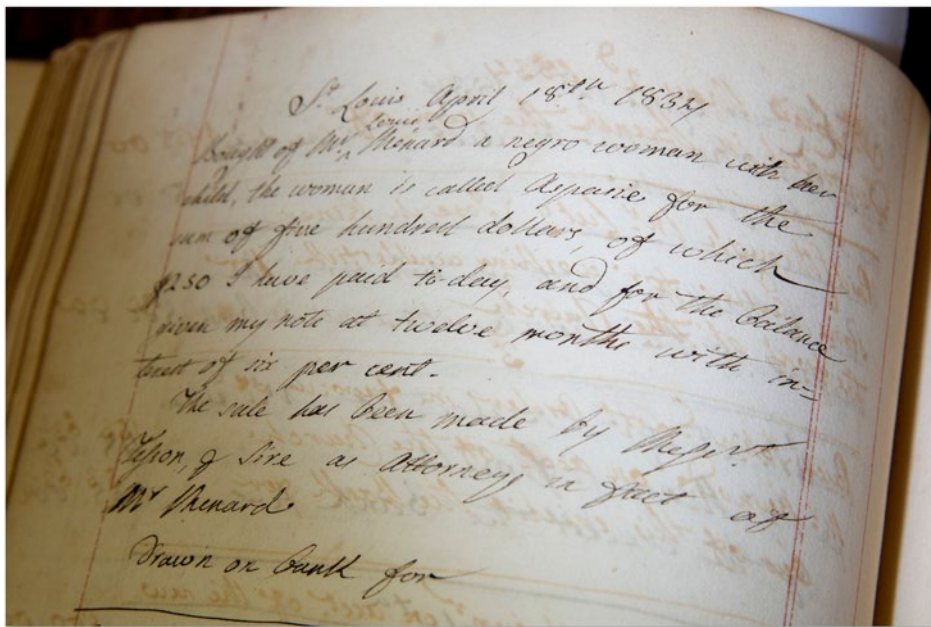 St Louis April 18th 1834
Louis
Bought of Mr Menard a negro woman with her
child, the woman is called Aspasie for the
sum of five hundred dollars, of which
$250 I have paid to-day, and for the balance
given my note at twelve months with in=
terest of six per cent.
The sale has been made by Messrs
Tesson, & Sire as Attorneys in fact of
Mr Menard
Drawn on Bank for